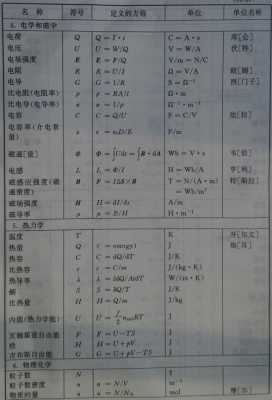 名 称 符号 定义的方程 单位 单位名称
4. 电学和磁学
电荷 Q Q = I·s C = A·s 库[仑]
电压 U U = W/Q V = W/A 伏[特]
电场强度 E E = F/Q V/m = N/C
电阻 R R = U/I Ω = V/A 欧[姆]
电导 G G = 1/R S = Ω⁻¹ 西[门子]
比电阻(电阻率) ρ ρ = RA/l Ω·m
比电导(电导率) Ω⁻¹·m⁻¹
电容 C C = Q/U F = C/V 法[拉]
电容率(介电常量) F/m
磁通[量] Φ Φ = ∫Udt = ∫B·dA Wb = V·s 韦[伯]
电感 L L = Φ/I H = Wb/A 亨[利]
磁感应强度(磁通密度) B T = N/(A·m) = Wb/m² 特[斯拉]
磁场强度 H A/m
磁导率 μ μ = B/H H·m⁻¹
5. 热力学
温度 T K 开[尔文]
热量 Q J 焦[耳]
热容 C C = dQ/dT J/K
比热容 c c = C/m J/(kg·K)
热导率 W/(m·K)
熵 S S = δQ/T J/K
比热量 H H = Q/m J/kg
内能(热力学能) U J
亥姆霍兹自由能 F F = U − TS J
焓 H H = U + pV J
吉布斯自由能 G G = U + pV − TS J
6. 物理化学
粒子数 N 1
粒子数密度 n n = N/V m⁻³
物质的量 n mol 摩[尔]